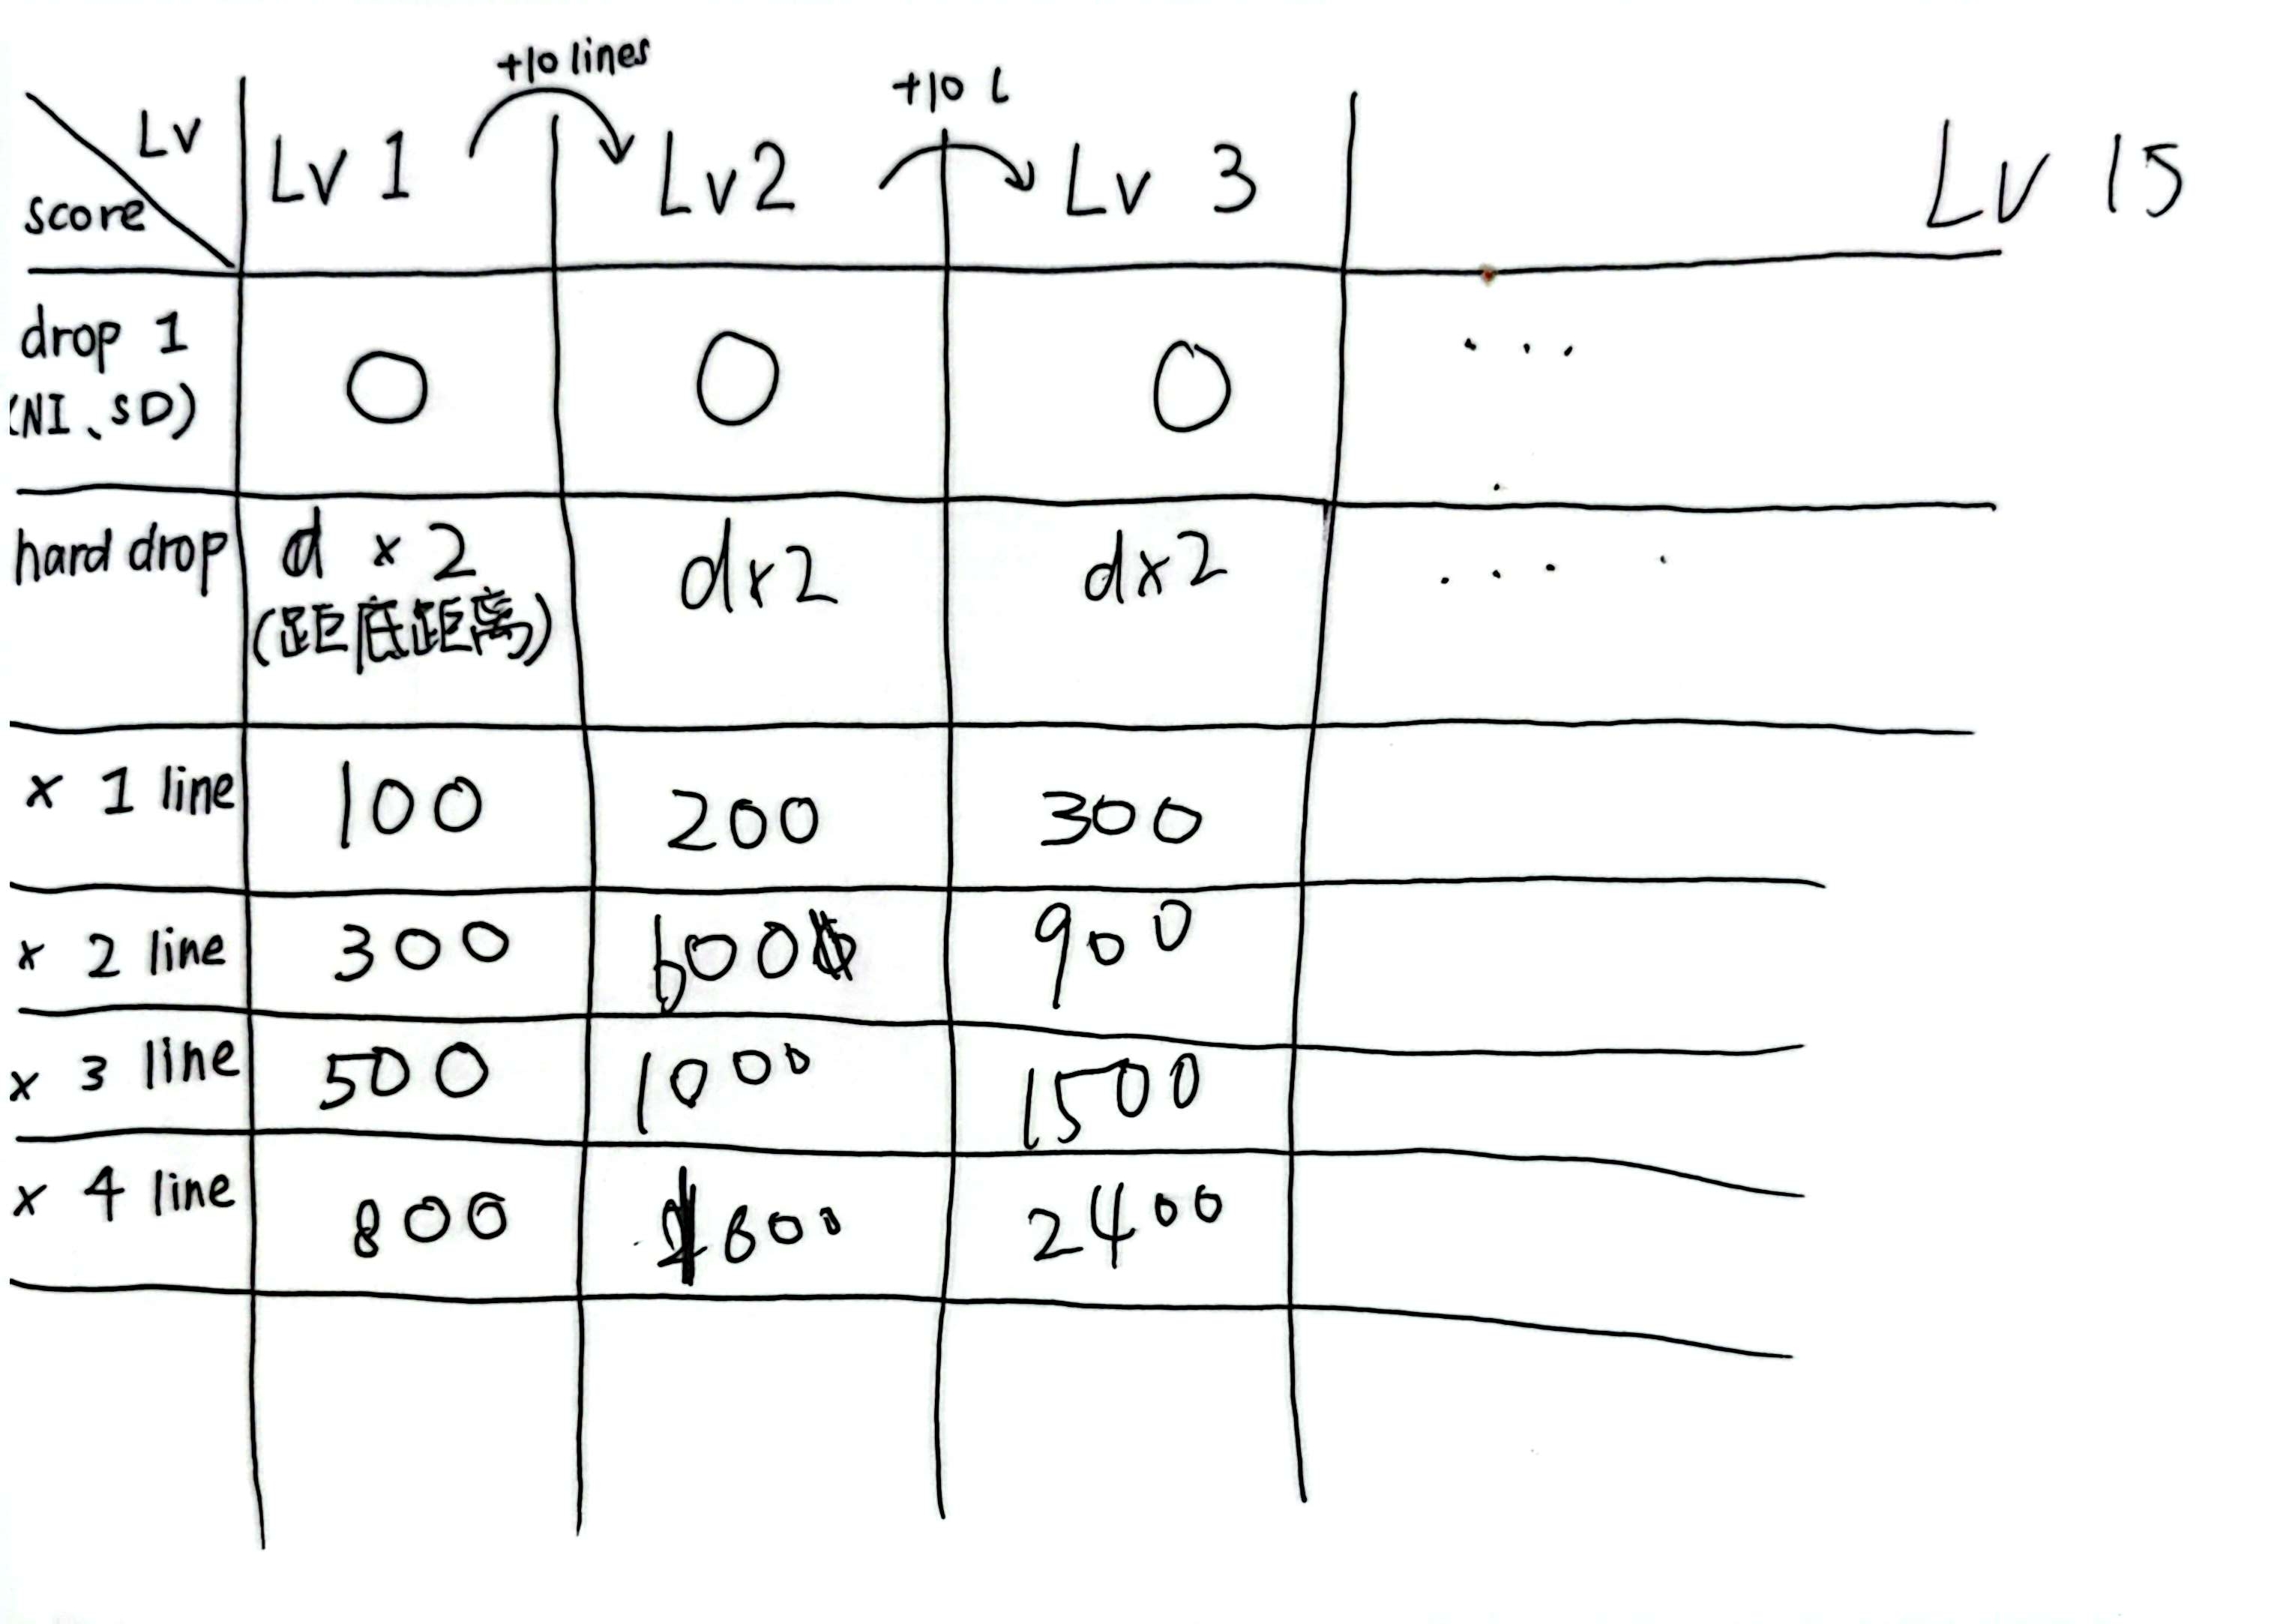 +10 lines
+10 L
Lv
score
Lv 1
Lv2
Lv 3
Lv 15
drop 1
(NI、SD)
0
0
0
...
hard drop
d × 2
(距底距离)
d×2
d×2
....
× 1 line
100
200
300
× 2 line
300
600
900
× 3 line
500
1000
1500
× 4 line
800
1600
2400